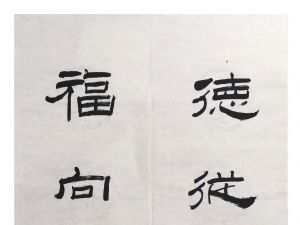 德從
福向